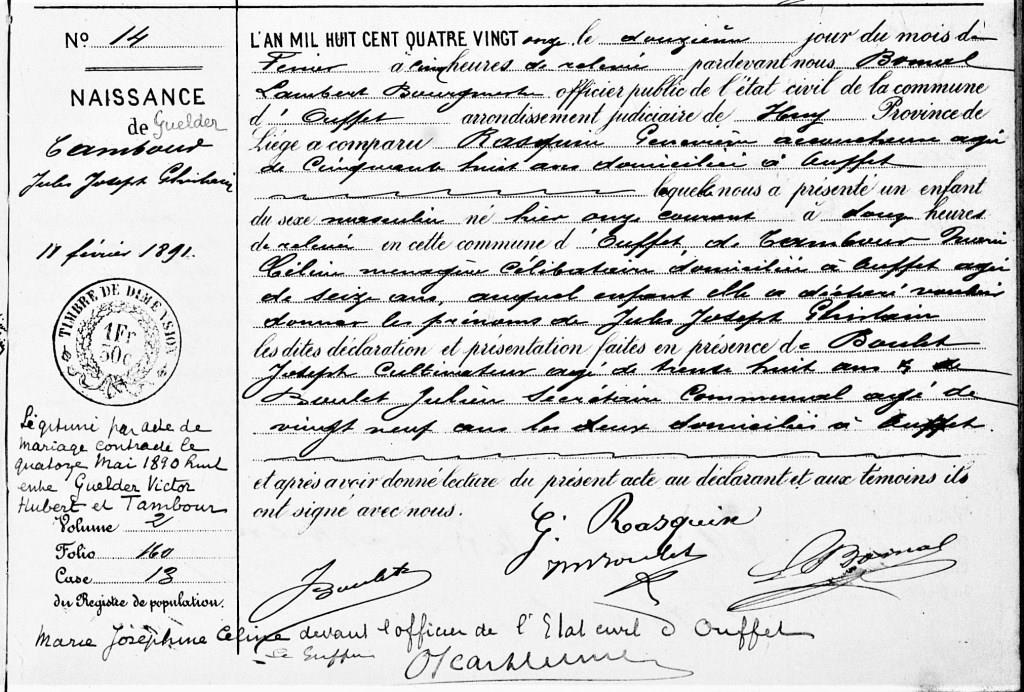 Nº 14
NAISSANCE
de Guelder
Tambour
Jules Joseph Ghislain
11 février 1891.
TIMBRE DE DIMENSION
1 Fr
50 c
Légitimé par acte de
mariage contracté le
quatorze Mai 1890
entre Guelder Victor
Hubert et Tambour
Volume 2
Folio 160
Case 13
du Registre de population.
L'AN MIL HUIT CENT QUATRE VINGT onze, le douzième jour du mois de
Février à cinq heures de relevée pardevant nous Bonmal
Lambert Bourgmestre officier public de l'état civil de la commune
d' Ouffet arrondissement judiciaire de Huy Province de
Liége a comparu Rasquin Geneviève accoucheur agée
de cinquante huit ans domiciliée à Ouffet
laquelle nous a présenté un enfant
du sexe masculin né hier onze courant à douze heures
de relevée en cette commune d' Ouffet de Tambour Marie
Céline menagère célibataire domiciliée à Ouffet agée
de seize ans, auquel enfant elle a déclaré vouloir
donner les prénoms de Jules Joseph Ghislain
les dites déclaration et présentation faites en présence de Boulet
Joseph Cultivateur agé de trente huit ans & de
Boulet Julien Secrétaire Communal agé de
vingt neuf ans les deux domiciliés à Ouffet.
et après avoir donné lecture du présent acte au déclarant et aux témoins ils
ont signé avec nous.
G. Rasquin
J Boulet
Boulet
L Bonmal
Marie Joséphine Celine devant l'officier de l'Etat civil d'Ouffet
Le Greffier